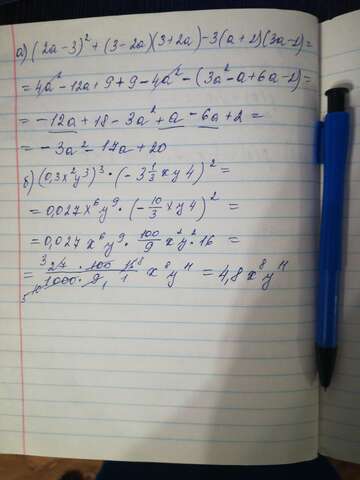 а) (2a-3)² + (3-2a)(3+2a) - 3(a+2)(3a-1) =
= 4a² - 12a + 9 + 9 - 4a² - (3a² - a + 6a - 2) =
= -12a + 18 - 3a² + a - 6a + 2 =
= -3a² - 17a + 20
б) (0,3x²y³)³ · (-3 1/3 xy4)² =
= 0,027x⁶y⁹ · (-10/3 xy4)² =
= 0,027x⁶y⁹ · 100/9 x²y² · 16 =
= 27/1000 · 100/9 · 16/1 x⁸y¹¹ = 4,8x⁸y¹¹